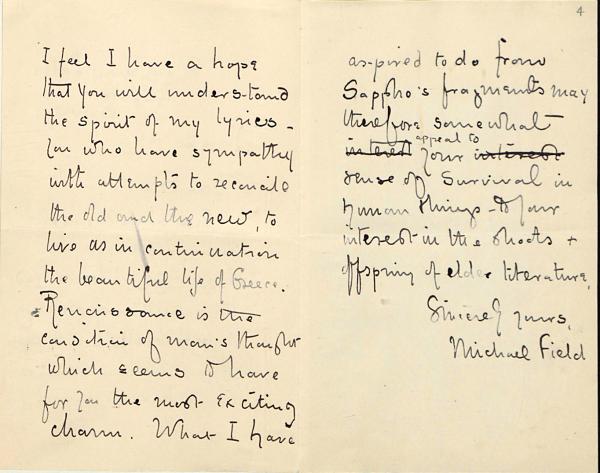 I feel I have a hope
that you will understand
the spirit of my lyrics –
you who have sympathy
with attempts to reconcile
the old and the new, to
live as in continuation
the beautiful life of Greece.
Renaissance is the
condition of man's thought
which seems to have
for you the most exciting
charm. What I have
4
aspired to do from
Sappho's fragments may
therefore somewhat
appeal to
interest your interest
sense of survival in
human things – to your
interest in the shoots +
offspring of elder literature.
Sincerely yours,
Michael Field